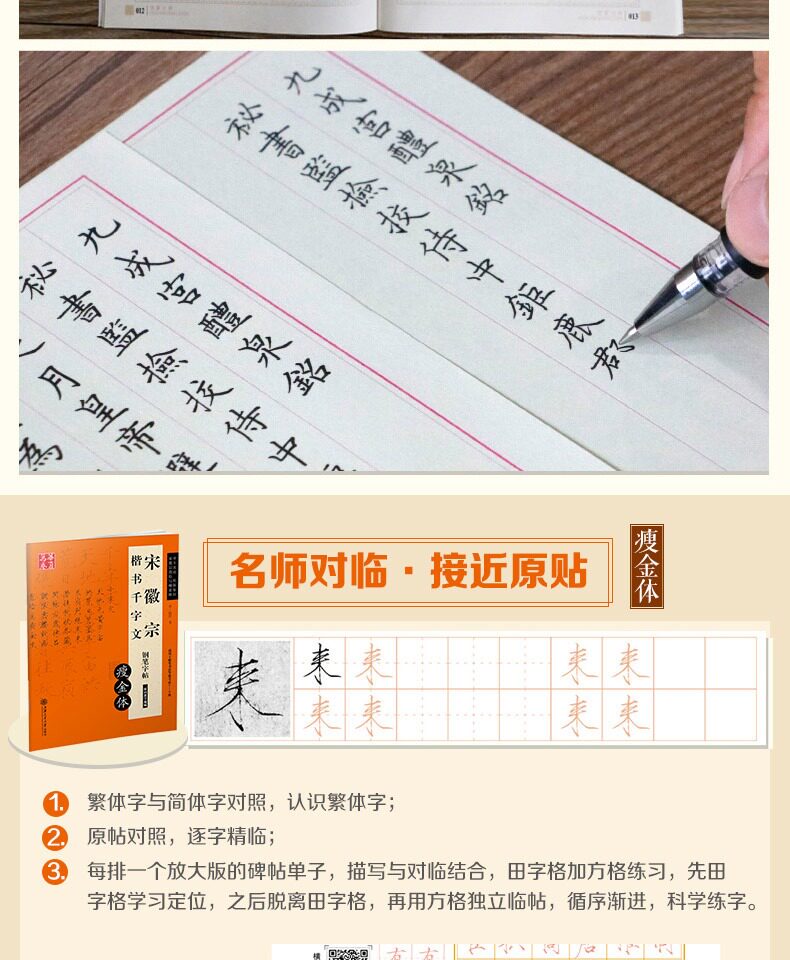 012
013
九成宮醴泉銘
祕書監撿挍侍中鉅鹿郡
九成宮醴泉銘
祕書監撿挍侍中
月皇帝
為
名师对临·接近原贴
瘦金体
宋徽宗
楷书千字文
钢笔字帖
瘦金体
来来来来来
来来来来
1. 繁体字与简体字对照，认识繁体字；
2. 原帖对照，逐字精临；
3. 每排一个放大版的碑帖单子，描写与对临结合，田字格加方格练习，先田
字格学习定位，之后脱离田字格，再用方格独立临帖，循序渐进，科学练字。
横
有有